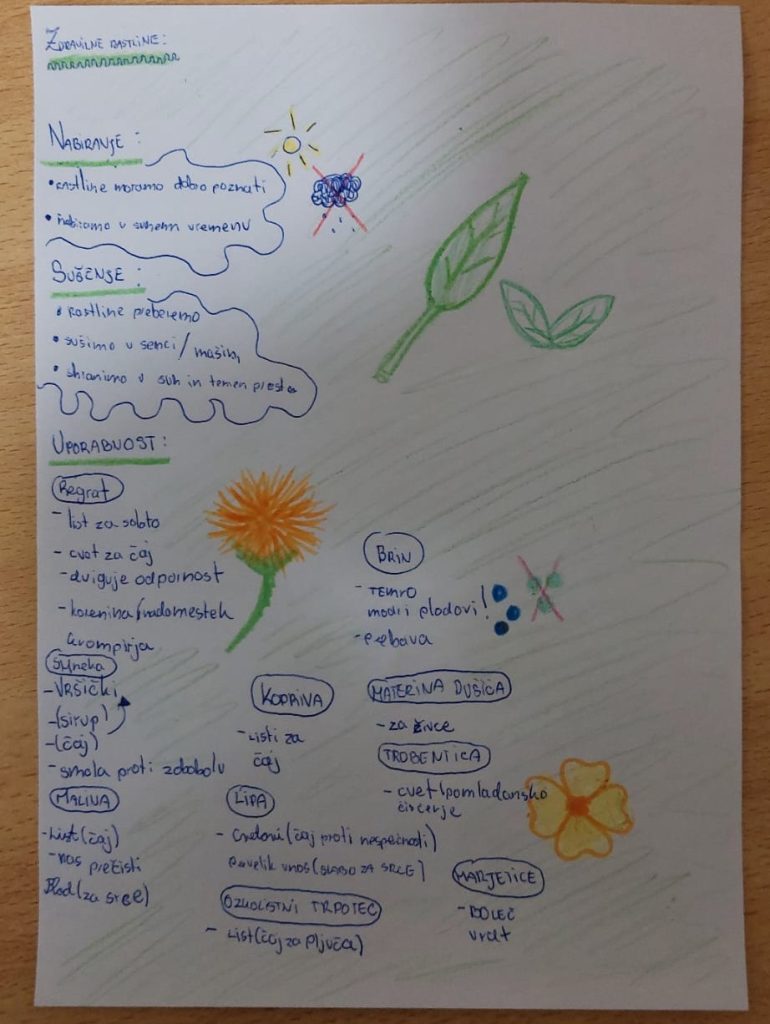 ZDRAVILNE RASTLINE:
NABIRANJE:
•rastline moramo dobro poznati
•nabiramo v suhem vremenu
SUŠENJE:
•rastline preberemo
•sušimo v senci/mašini
•shranimo v suh in temen prostor
UPORABNOST:
Regrat
-list za solato
-cvet za čaj
-dviguje odpornost
-korenina/nadomestek
krompirja
Smreka
-VRŠIČKI
-(sirup)
-(čaj)
-smola proti zdobolu
MALINA
-List(čaj)
-nas prečisti
Plod(za srce)
KOPRIVA
-listi za
čaj
LIPA
-Cvetovi(čaj proti nespečnosti)
prevelik vnos(SLABO ZA SRCE)
OZKOLISTNI TRPOTEC
-List(čaj za pljuča)
BRIN
-TEMNO
modri plodovi!
-prebava
MATERINA DUŠICA
-za živce
TROBENTICA
-cvet(pomladansko
čiščenje
MARJETICE
-BOLEČ
vrat